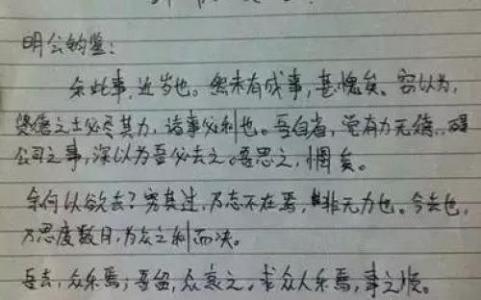 明公钧鉴:
余此事,近岁也。然未有成事,甚愧矣。窃以为,
贤德之士必尽其力,诸事必利也。吾自省,觉有力无绩,碍
公司之事,深以为吾必去之。吾思之,惆矣。
余何以欲去?穷其过,乃志不在焉,非无力也。今去也,
乃思度数月,为众之利而决。
吾去,众乐焉;吾留,众哀之。求众人乐焉,事之顺。